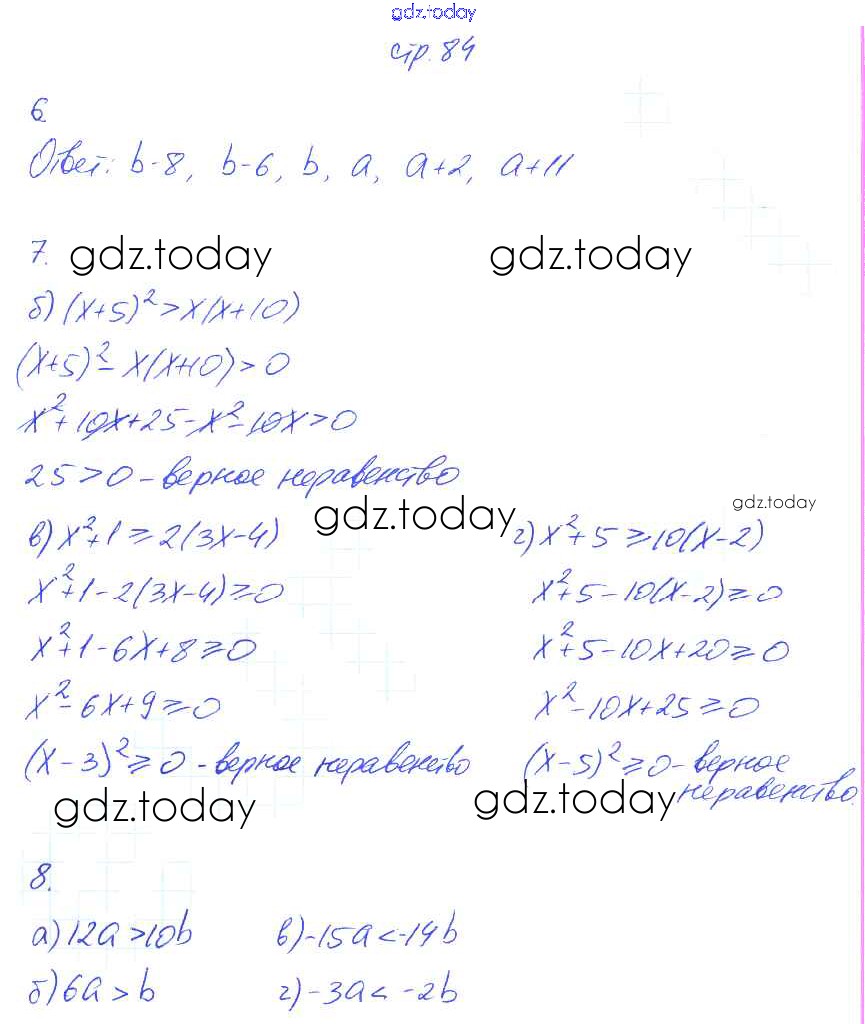 gdz.today
стр. 84
6
Ответ: b-8, b-6, b, a, a+2, a+11
7.
gdz.today gdz.today
б) (x+5)²>x(x+10)
(x+5)²-x(x+10)>0
x²+10x+25-x²-10x>0
25>0-верное неравенство
gdz.today gdz.today
в) x²+1⩾2(3x-4)
x²+1-2(3x-4)⩾0
x²+1-6x+8⩾0
x²-6x+9⩾0
(x-3)²⩾0-верное неравенство
г) x²+5⩾10(x-2)
x²+5-10(x-2)⩾0
x²+5-10x+20⩾0
x²-10x+25⩾0
(x-5)²⩾0-верное
неравенство.
gdz.today gdz.today
8.
а) 12a>10b
б) 6a>b
в) -15a<-14b
г) -3a<-2b